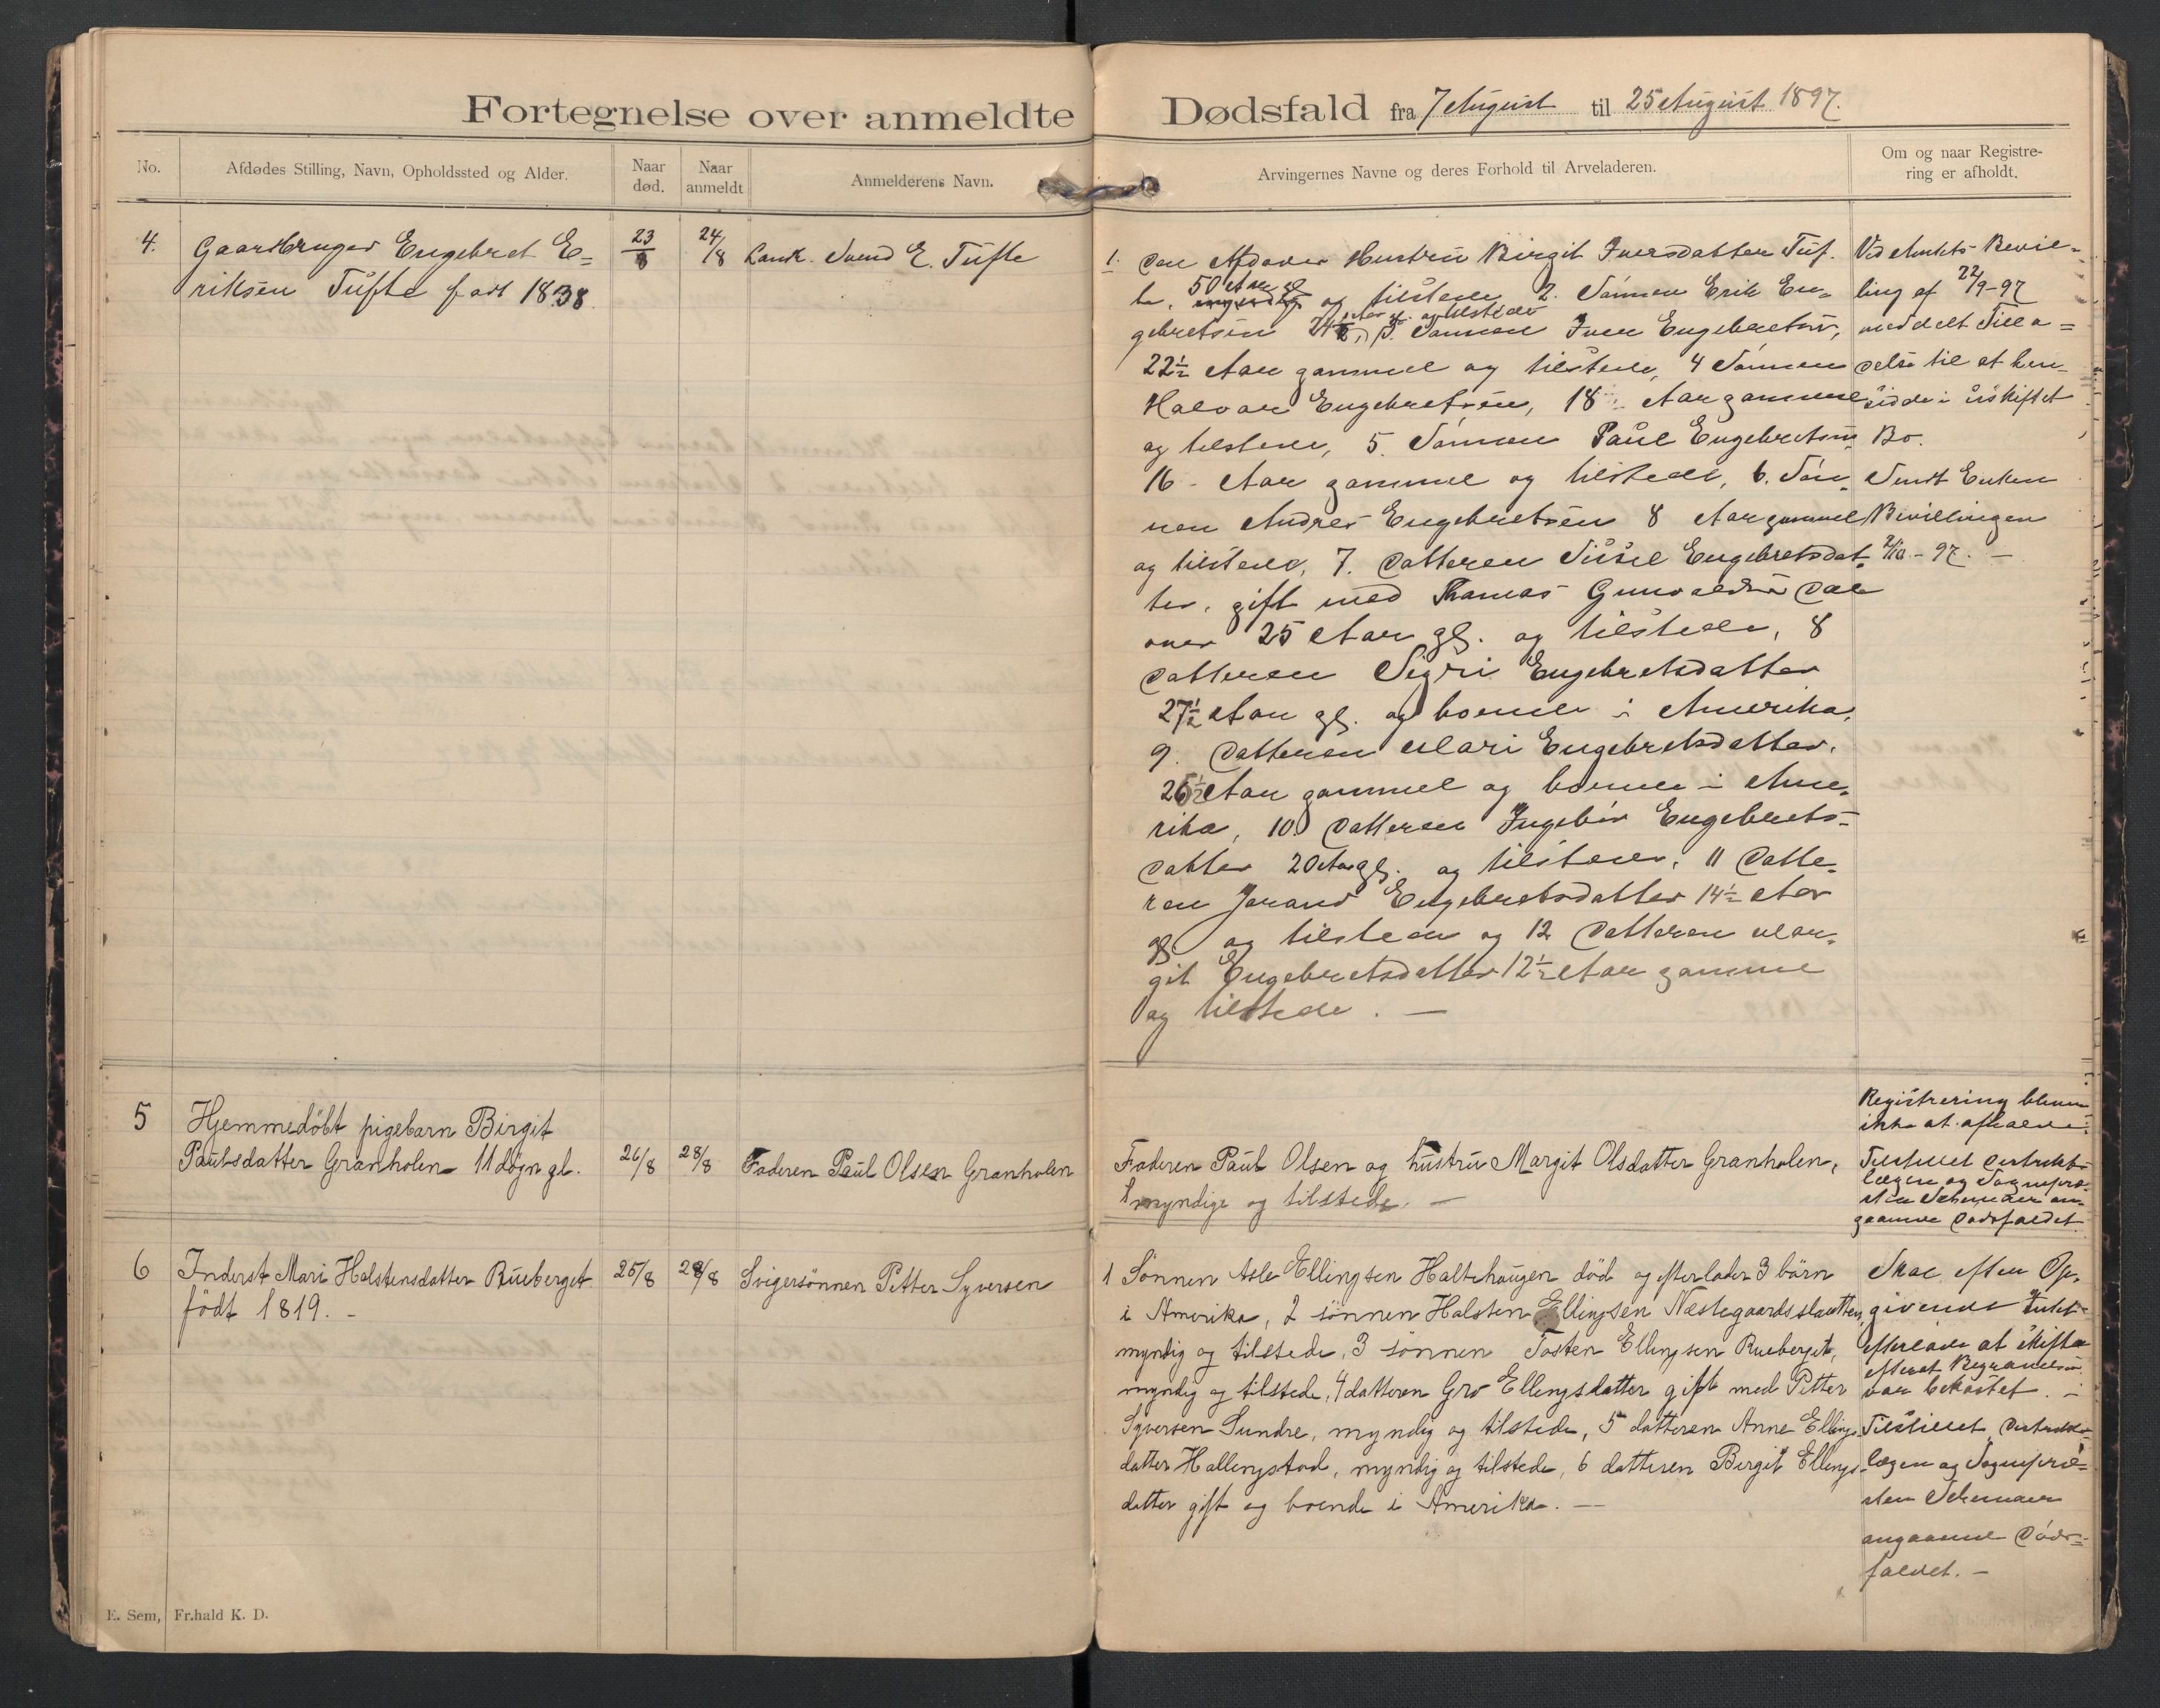 Fortegnelse over anmeldte Dødsfald fra 7 August til 25 August 1897.
No.
Afdødes Stilling, Navn, Opholdssted og Alder.
Naar død.
Naar anmeldt
Anmelderens Navn.
Arvingernes Navne og deres Forhold til Arveladeren.
Om og naar Registrering er afholdt.
4.
Gaardbruger Engebret E=
riksen Tufte født 1838.
23/8
24/8
Svend E. Tufte
1. Den Afdødes Hustru Birgit Iversdatter Tuf-
te, 50 Aar gl. og tilstede 2. Sønnen Erik En=
gebretsen 24½ Aar gl. og tilstede, 3. Sønnen Iver Engebretsen,
22½ Aar gammel og tilstede, 4 Sønnen
Halvor Engebretsen, 18 Aar gammel
og tilstede, 5. Sønnen Paul Engebretsen
16 Aar gammel og tilstede, 6. Søn-
nen Andres Engebretsen 8 Aar gammel
og tilstede, 7. Datteren Sissel Engebretsdat-
ter, gift med Thomas Gunvaldsen Dal
over 25 Aar gl. og tilstede, 8
Datteren Sigri Engebretsdatter
27½ Aar gl. og boende i Amerika,
9. Datteren Mari Engebretsdatter,
26½ Aar gammel og boende i Ame-
rika, 10 Datteren Ingebør Engebrets-
datter 20 Aar gl. og tilstede, 11 Datte-
ren Jorand Engebretsdatter 14½ Aar
gl. og tilstede og 12 Datteren Mar-
git Engebretsdatter 12½ Aar gammel
og tilstede. —
Ved Amtets Bevil-
ling af 22/9-97
meddelt Tilla=
delse til at hen-
sidde i uskiftet
Bo.
Sendt Enken
Bevillingen
2/10-97. —
5
Hjemmedöbt pigebarn Birgit
Paulsdatter Granholen 11 døgn gl.
26/8
28/8
Faderen Paul Olsen Granholen
Faderen Paul Olsen og hustru Margit Olsdatter Granholen,
myndige og tilstede. —
Registrering bliver
ikke at afholde.
Tilstillet Distrikts-
lægen og Sognepræ-
sten Schemaer an-
gaaende Dødsfaldet.
6
Inderst Mari Halstensdatter Rueberget
födt 1819. -
25/8
28/8
Svigersönnen Petter Syversen
1 Sønnen Asle Ellingsen Haltehaugen död og efterlader 3 børn
i Amerika, 2 sönnen Halsten Ellingsen Næstegaardsslaatten,
myndig og tilstede, 3 sönnen Tosten Ellingsen Rueberget,
myndig og tilstede, 4 datteren Gro Ellingsdatter gift med Petter
Syversen Sundre, myndig og tilstede, 5 datteren Anne Ellings-
datter Hallingstad, myndig og tilstede, 6 datteren Birgit Ellings-
datter gift og boende i Amerika. —
Skal efter Op-
givende Intet
efterlade at skifte
efterat Begravelsen
var bekostet. -
Tilstillet Distrikts-
lægen og Sognepræ=
sten Schemaer
angaaende Døds-
faldet. —
E. Sem, Fr.hald K. D.